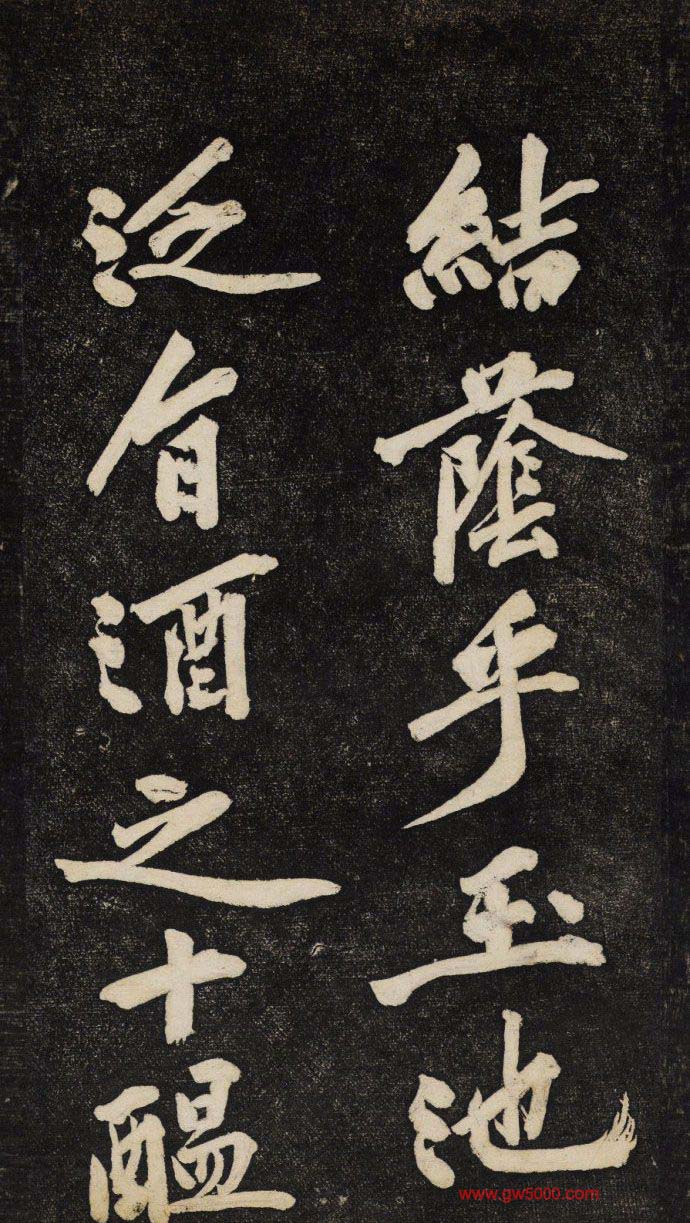 結蔭乎玉池
泛旨酒之十醖
www.gw5000.com